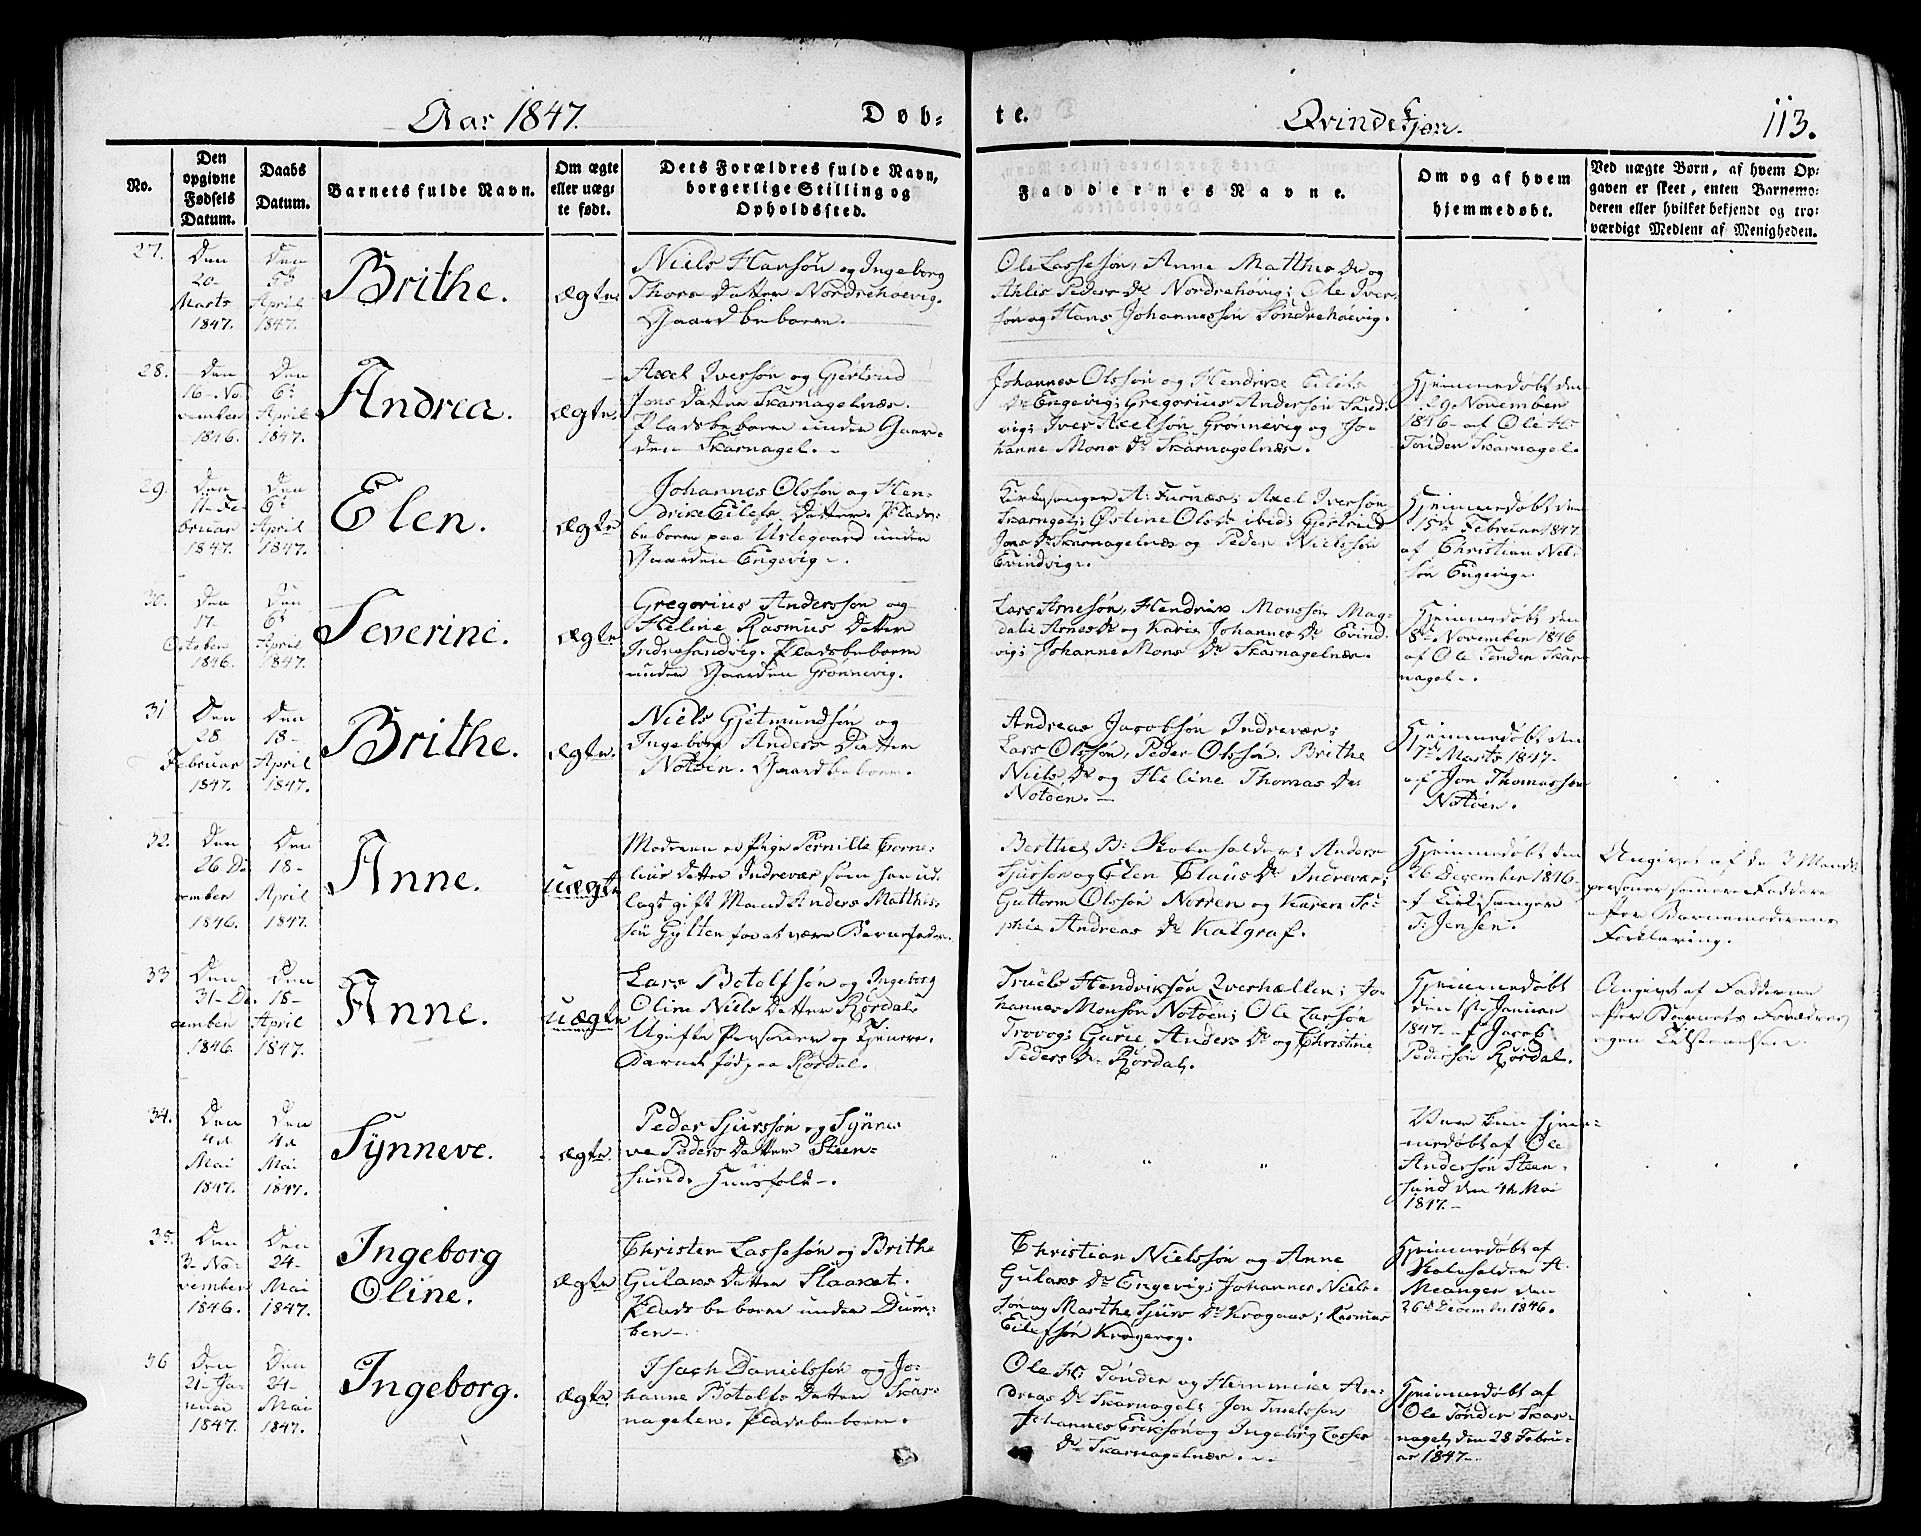 Aar 1847.
Døb-
te.
Qvindekjøn.
113.
No.
Den opgivne Fødsels Datum.
Daabs Datum.
Barnets fulde Navn.
Om ægte eller uægte født.
Dets Forældres fulde Navn, borgerlige Stilling og Opholdssted.
Faddernes Navne.
Om og af hvem hjemmedøbt.
Ved uægte Børn, af hvem Opgaven er skeet, enten Barnemoderen eller hvilket bekjendt og troværdigt Medlem af Menigheden.
27.
Den
20-
Marts
1847.
Den
5te
April
1847.
Brithe.
Ægte.
Niels Hansøn og Ingeborg
Thors Datter Nordrehøevig.
Gaardbeboere.
Ole Lassesøn, Anne Matthis Dr og
Ahlis Peders Dr Nordrehøvig; Ole Iver-
søn og Hans Johannessøn Søndrehøevig.
28.
Den
16-No
vember
1846.
Den
6te
April
1847.
Andrea.
Ægte.
Axel Iversøn og Gjertrud
Jons Datter Skarnagelnæs.
Pladsbeboere under Gaar-
den Skarnagel.
Johannes Olssøn og Hendrike Eilefs
Dr Engevig; Gregorius Andersøn Sand-
vig; Iver Axelsøn Grønnevig og Jo-
hanne Mons Dr Skarnagelnæs.
Hjemmedøbt den
29 November
1846 af Ole H:
Tønder Skarnagel.
29.
Den
11-Fe
bruar
1847.
Den
6te
April
1847.
Elen.
Ægte
Johannes Olssøn og Hen-
drike Eilefs Datter. Plads-
beboere paa Uslegaard under
Gaarden Engevig.
Kirkesanger A: Furnæs; Axel Iversøn
Skarngel; Østine Ols Dr ibid; Gjertrud
Jons Dr Skarnagelnæs og Peder Nielssøn
Evindvig.
Hjemmedøbt den
15de Februar 1847
af Christian Nel-
søn Engevig.
30.
Den
17.
October
1846.
Den
6te
April
1847.
Severine.
Ægte
Gregorius Anderssøn og
Heline Rasmus Datter
Indresandvig. Pladsbeboere
under Gaarden Grønnevig.
Lars Arnesøn, Hendrik Monssøn Mag-
dali Arnes Dr og Karie Johannes Dr Evind-
vig; Johanne Mons Dr Skarnagelnæs.
Hjemmedøbt den
8de November 1846
af Ole Tønder Skar-
nagel.
31
Den
28
Februar
1847.
Den
18-
April
1847.
Brithe.
Ægte.
Niels Gjetmundsøn og
Ingeborg Anders Datter
Notøen. Gaardbeboere.
Andreas Jacobsøn Indrevær;
Lars Olssøn, Peder Olssøn, Brithe
Niels Dr og Heline Thomas Dr
Notøen.
Hjemmedøbt den
7de Marts 1847-
af Jon Thomassøn
Notøen.
32.
Den
26 De
cember
1846.
Den
18-
April
1847.
Anne.
Uægte
Moderen er Pige Pernille Corne-
lius Datter Indrevær som har ud-
lagt gift Mand Anders Matthis-
søn Gylten for at være Barnefader.
Berthel B: Skoleholder; Anders
Sjursøn og Elen Claus Dr Indrevær;
Guttorm Olssøn Norren og Karen So-
phie Andreas Dr Kalgraf.
Hjemmedøbt den
26 December 1846-
af Kirkesanger
T: Jensen.
Angivet af de 3 Mands-
personer som ere Faddere
efter Barnemoderens
Forklaring.
33
Den
31-De
cember
1846.
Den
18-
April
1847.
Anne.
Uægte
Lars Botolfsøn og Ingeborg
Oline Niels Datter Rørdal.
Ugifte Personer og Tjenere.
Barnet fød paa Rørdal.
Truels Hendriksøn Qverhællen; Jo-
hannes Monsøn Notøen; Ole Larsøn
Trovog; Gurie Anders Dr og Christine
Peders Dr Rørdal.
Hjemmedøbt
den 1ste Januar
1847. af Jacob
Pedersøn Rørdal.
Angivet af Fadderne
efter Barnets Forældres
egen Tilstaaelse.
34.
Den
4de
Mai
1847.
Den
4de
Mai
1847.
Synneve.
Ægte.
Peder Sjurssøn og Synne-
ve Peders Datter Steen-
sund. Huusfolk.
" "
Var kun hjem-
medøbt af Ole
Andersøn Steen-
sund den 4de Mai
1847.
35.
Den
3-No-
vember
1846.
Den
24-
Mai
1847.
Ingeborg
Oline.
Ægte
Christen Lassesøn og Brithe
Gulaks Datter Slaaket.
Pladsbeboere under Dum-
ben.
Christian Nielssøn og Anne
Gulaks Dr Engevig; Johannes Niels-
søn og Marthe Sjurs Dr Krognæs; Rasmus
Eilefsøn Krogevog.
Hjemmedøbt af
Skoleholder A.
Meanger den
26de December 1846.
36
Den
21-Ja-
nuar
1847.
Den
24-
Mai
1847.
Ingeborg.
Ægte
Isach Danielssøn og Jo-
hanne Botolfs Datter Skar-
nagelen. Pladsbeboere.
Ole H: Tønder og Hemmeke An-
dreas Dr Skarnagel; Jon Truelssøn
Johannes Eriksøn og Ingeborg Lasses
Dr Skarnagelnæs.
Hjemmedøbt af
Ole Tønder Skar-
nagel, den 28 Febru-
ar 1847.